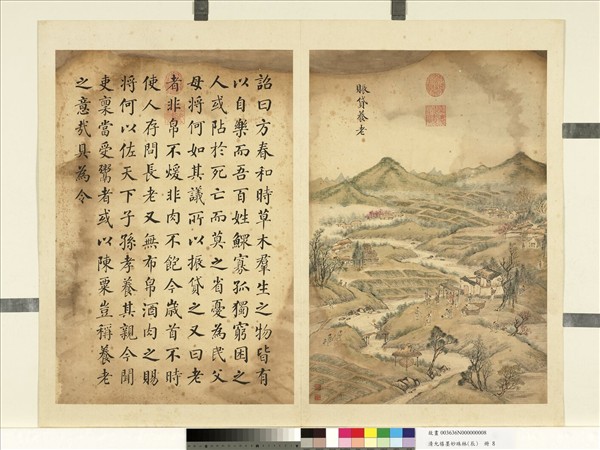 賑貸養老
詔曰方春和時草木群生之物皆有
以自樂而吾百姓鰥寡孤獨窮困之
人或阽於死亡而莫之省憂為民父
母將何如其議所以振貸之又曰老
者非帛不煖非肉不飽今歲首不時
使人存問長老又無布帛酒肉之賜
將何以佐天下子孫孝養其親今聞
吏稟當受鬻者或以陳粟豈稱養老
之意哉具為令
故畫003636N000000008